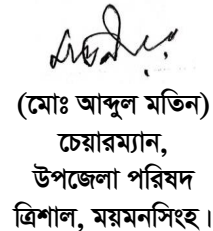 (মোঃ আব্দুল মতিন)
চেয়ারম্যান,
উপজেলা পরিষদ
ত্রিশাল, ময়মনসিংহ।